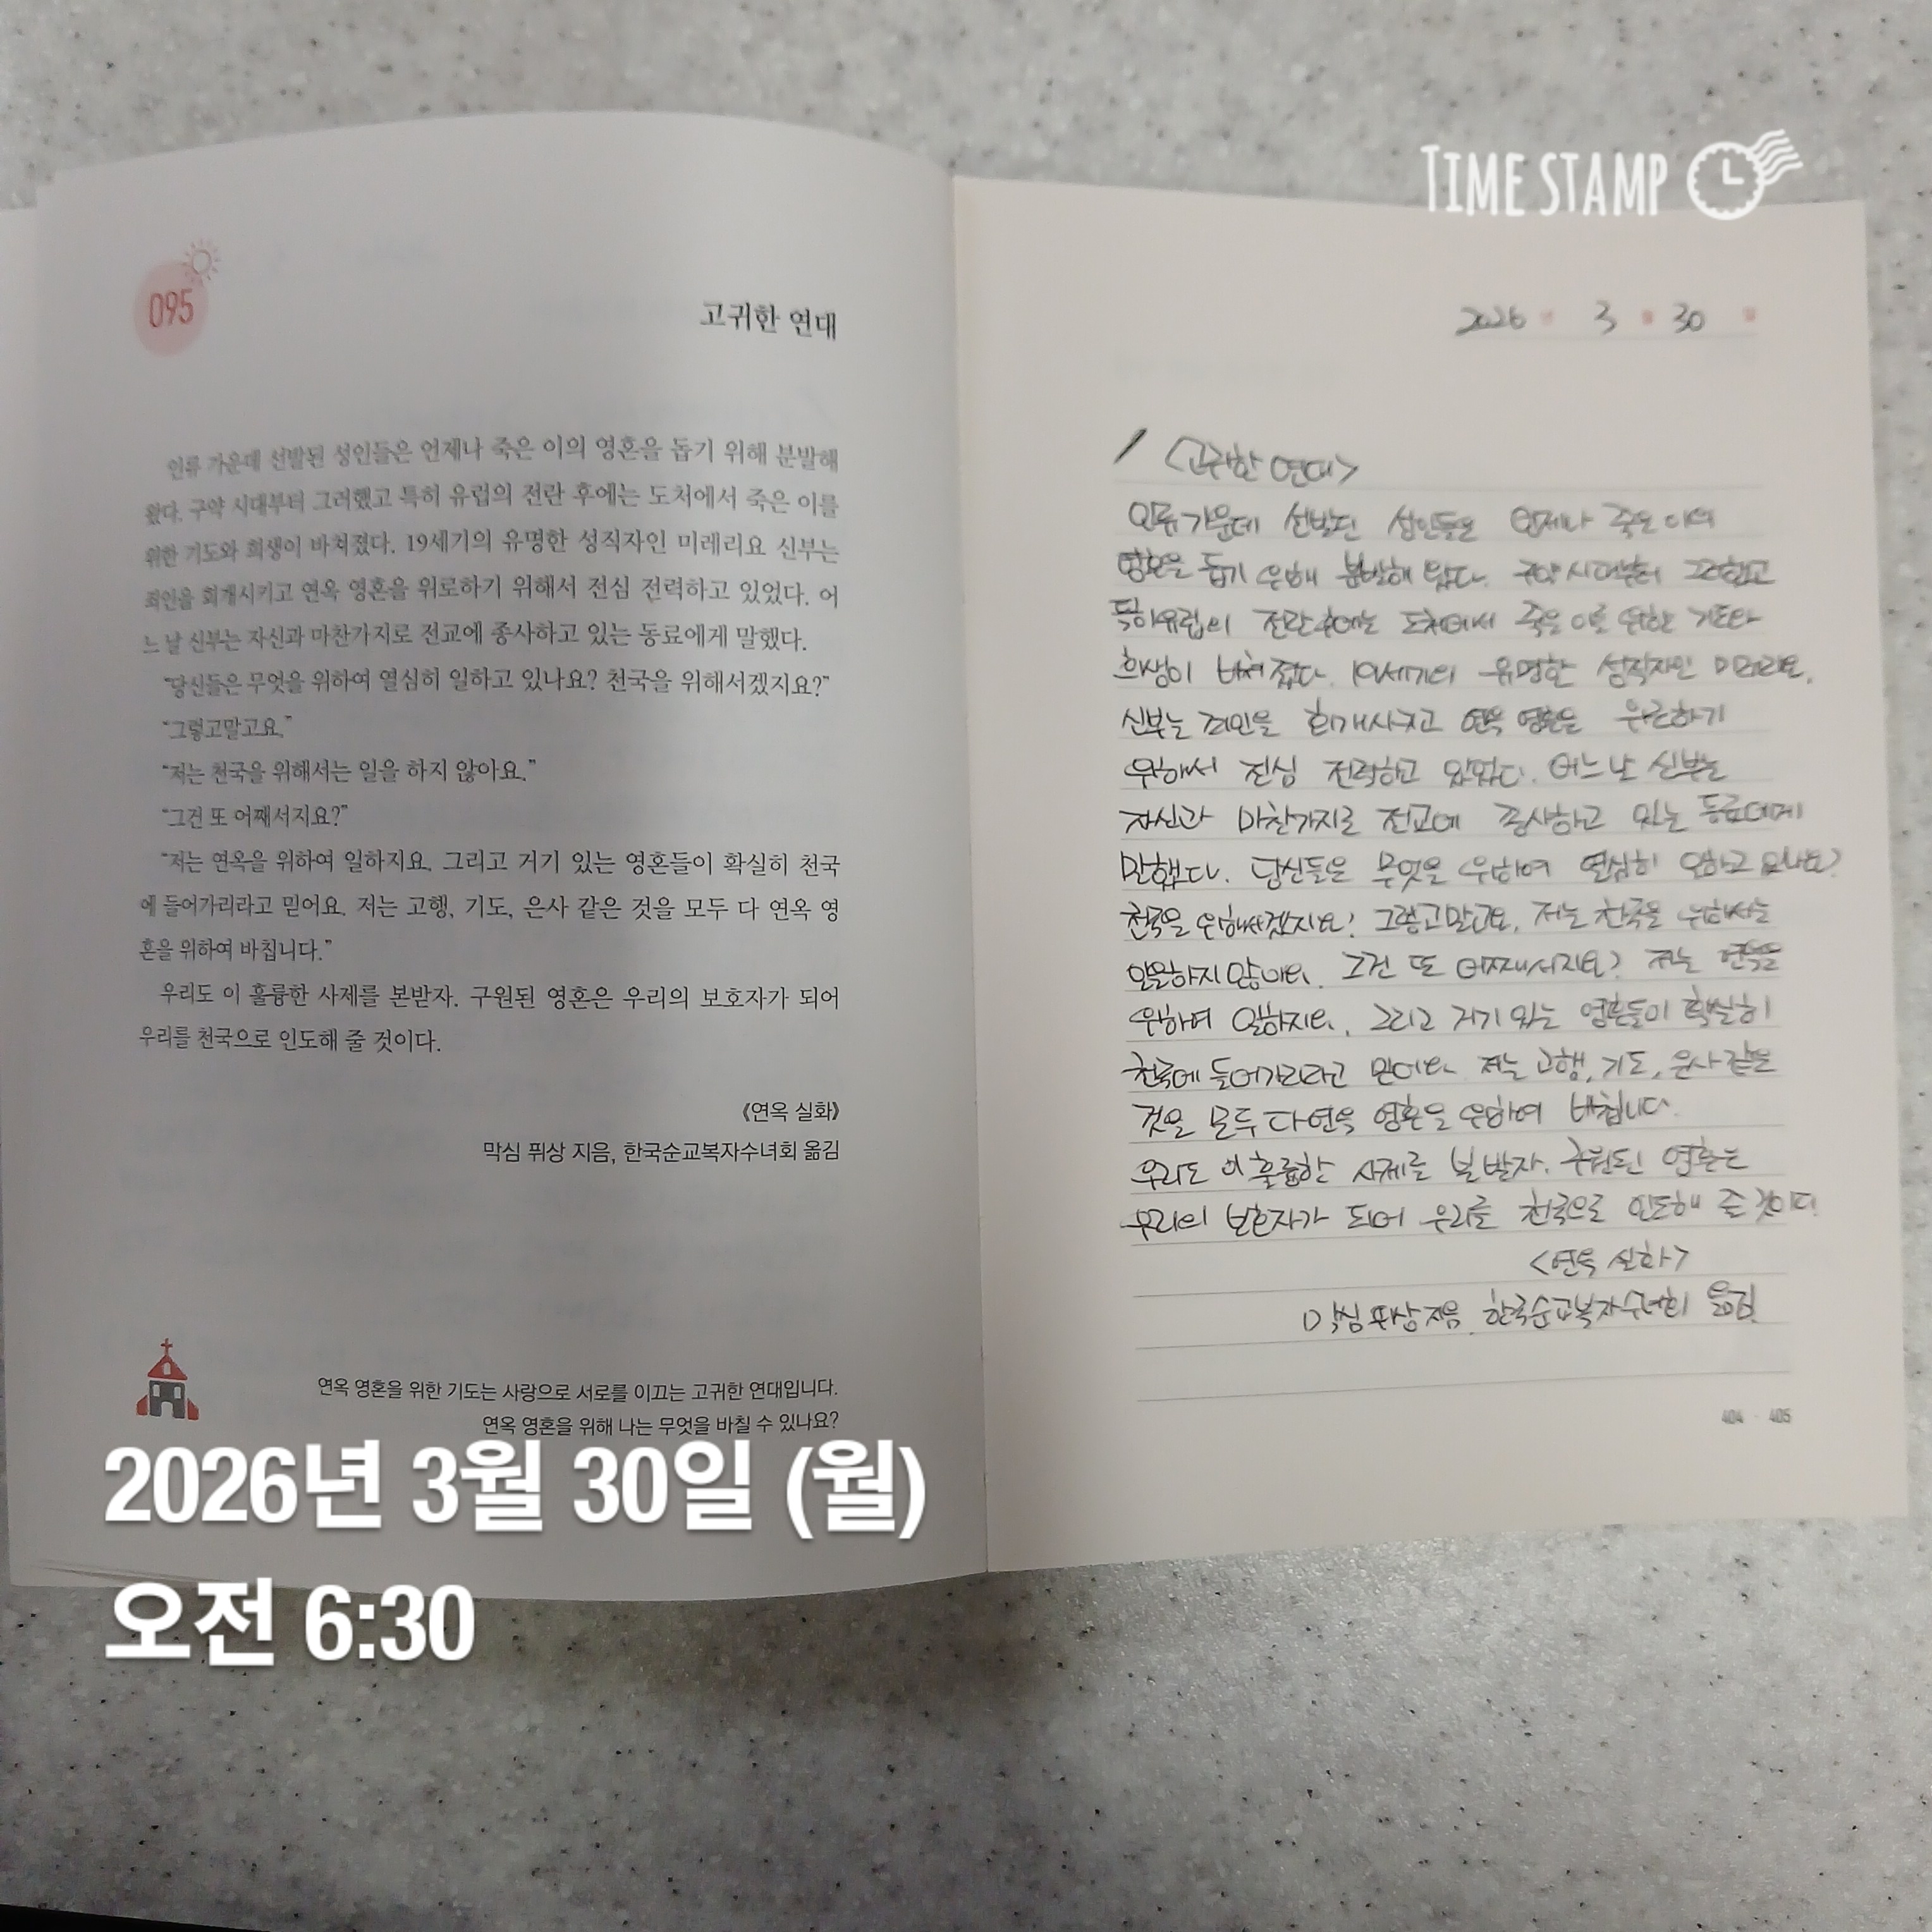 TIME STAMP
095
고귀한 연대
인류 가운데 선발된 성인들은 언제나 죽은 이의 영혼을 돕기 위해 분발해
왔다. 구약 시대부터 그러했고 특히 유럽의 전란 후에는 도처에서 죽은 이를
위한 기도와 희생이 바쳐졌다. 19세기의 유명한 성직자인 미레리요 신부는
죄인을 회개시키고 연옥 영혼을 위로하기 위해서 전심 전력하고 있었다. 어
느 날 신부는 자신과 마찬가지로 전교에 종사하고 있는 동료에게 말했다.
“당신들은 무엇을 위하여 열심히 일하고 있나요? 천국을 위해서겠지요?”
“그렇고말고요.”
“저는 천국을 위해서는 일을 하지 않아요.”
“그건 또 어째서지요?”
“저는 연옥을 위하여 일하지요. 그리고 거기 있는 영혼들이 확실히 천국
에 들어가리라고 믿어요. 저는 고행, 기도, 은사 같은 것을 모두 다 연옥 영
혼을 위하여 바칩니다.”
우리도 이 훌륭한 사제를 본받자. 구원된 영혼은 우리의 보호자가 되어
우리를 천국으로 인도해 줄 것이다.
《연옥 실화》
막심 퓌상 지음, 한국순교복자수녀회 옮김
연옥 영혼을 위한 기도는 사랑으로 서로를 이끄는 고귀한 연대입니다.
연옥 영혼을 위해 나는 무엇을 바칠 수 있나요?
2026 년 3 월 30 일
<고귀한 연대>
인류 가운데 선발된 성인들은 언제나 죽은 이의
영혼을 돕기 위해 분발해 왔다. 구약 시대부터 그러했고
특히 유럽의 전란 후에는 도처에서 죽은 이를 위한 기도와
희생이 바쳐 졌다. 19세기의 유명한 성직자인 미레리요,
신부는 죄인을 회개시키고 연옥 영혼을 위로하기
위해서 전심 전력하고 있었다. 어느 날 신부는
자신과 마찬가지로 전교에 종사하고 있는 동료에게
말했다. 당신들은 무엇을 위하여 열심히 일하고 있나요?
천국을 위해서겠지요? 그렇고말고요. 저는 천국을 위해서는
일을하지 않아요. 그건 또 어째서지요? 저는 연옥을
위하여 일하지요. 그리고 거기 있는 영혼들이 확실히
천국에 들어가리라고 믿어요. 저는 고행, 기도, 은사 같은
것을 모두 다 연옥 영혼을 위하여 바칩니다.
우리도 이 훌륭한 사제를 본받자. 구원된 영혼은
우리의 보호자가 되어 우리를 천국으로 인도해 줄 것이다
<연옥 실화>
막심 퓌상 지음. 한국순교복자수녀회 옮김.
404 · 405
2026년 3월 30일 (월)
오전 6:30